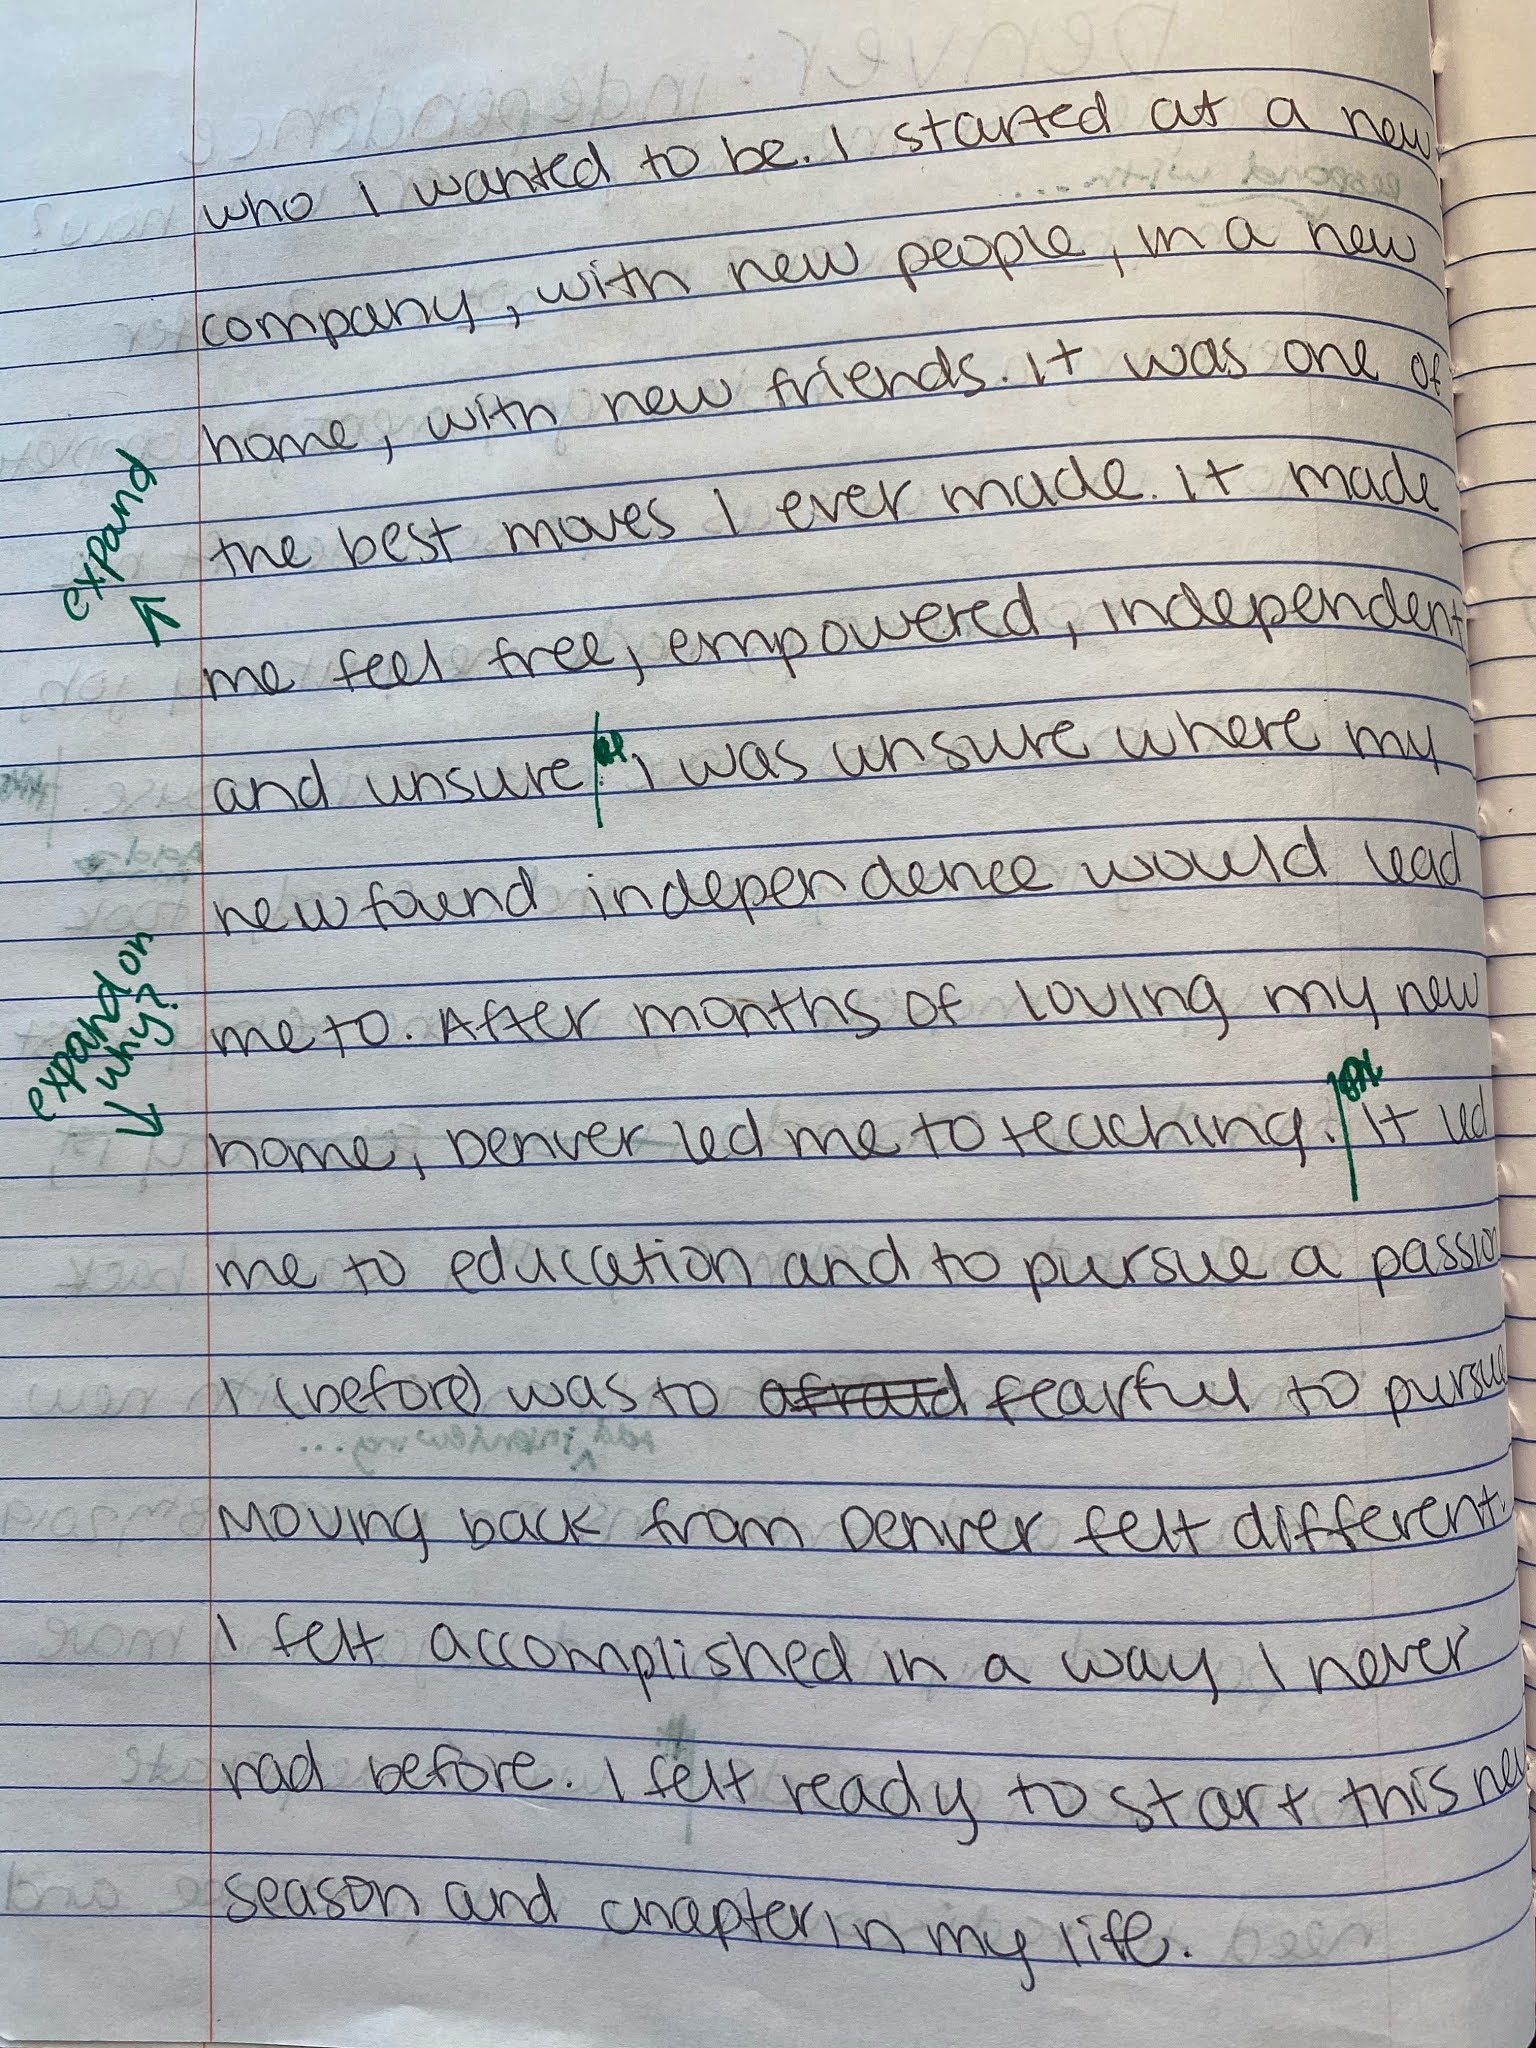 who I wanted to be. I started at a new
company, with new people, in a new
home, with new friends. It was one of
the best moves I ever made. It made
expand
me feel free, empowered, independent
and unsure. I was unsure where my
newfound independence would lead
me to. After months of loving my new
expand on
why?
home, Denver led me to teaching. It led
me to education and to pursue a passion
I (before) was to afraid fearful to pursue
Moving back from Denver felt different.
I felt accomplished in a way I never
had before. I felt ready to start this new
season and chapter in my life.